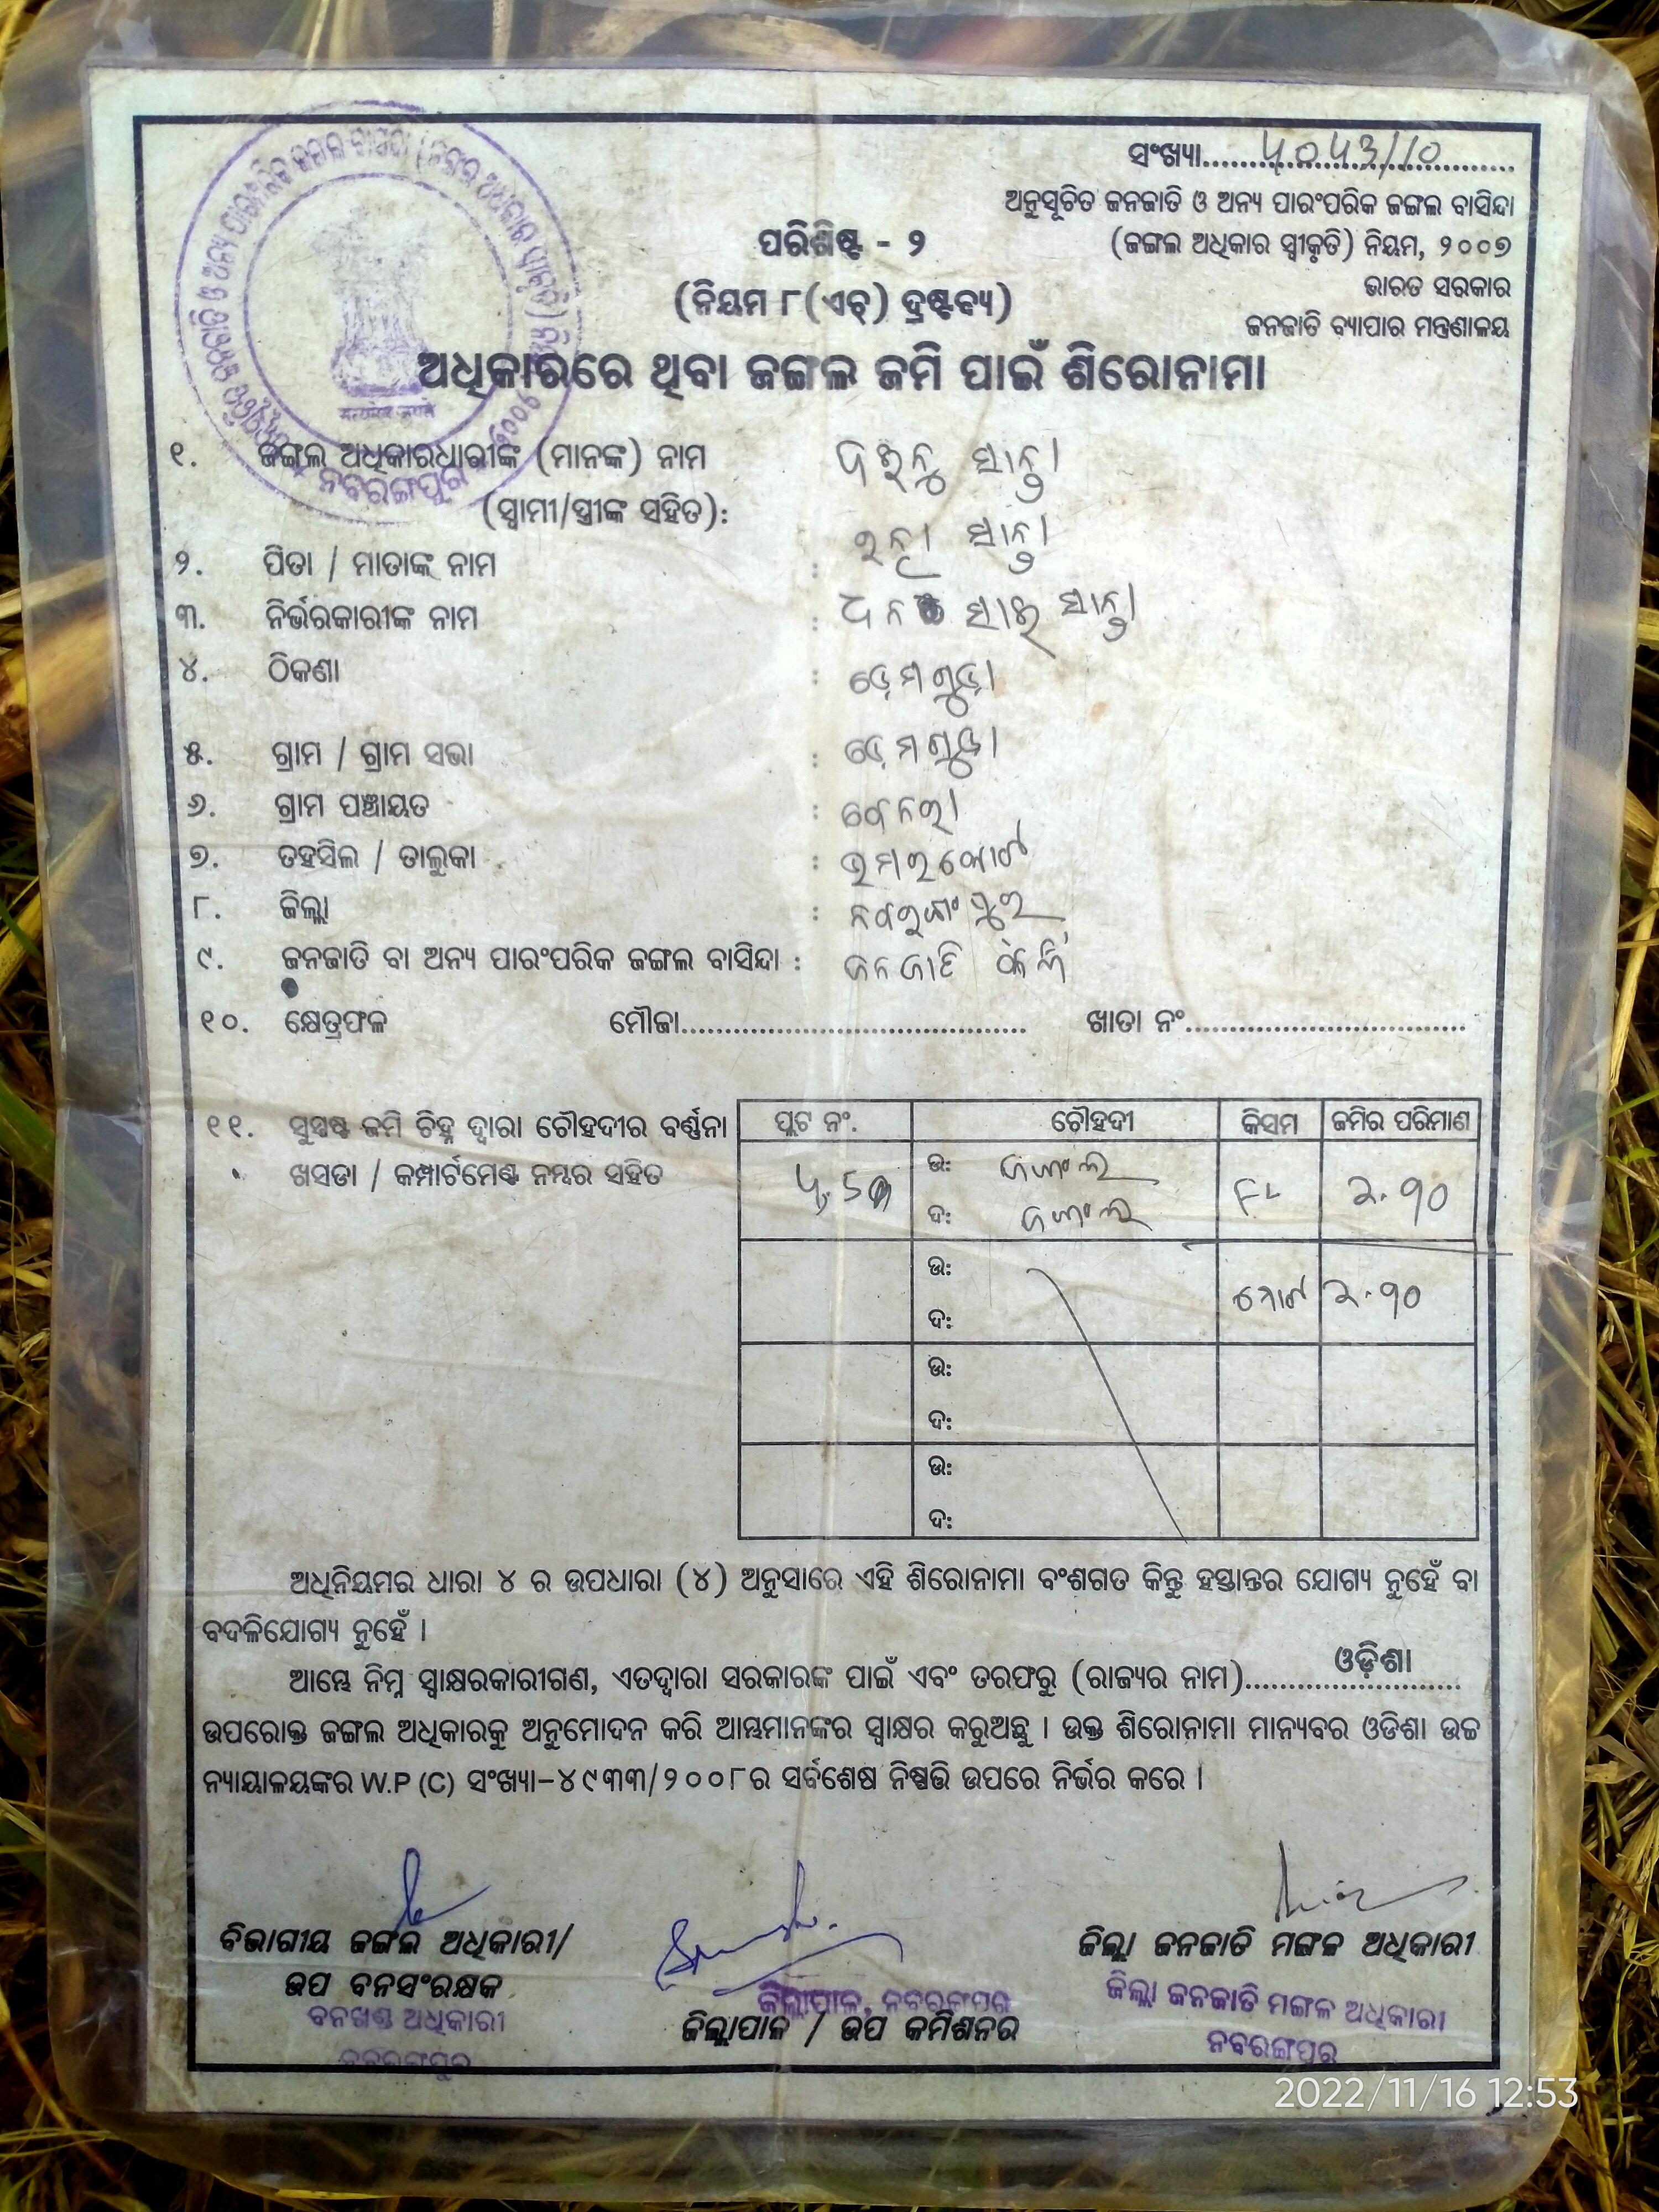 ସଂଖ୍ୟା
ଅନୁସୂଚିତ ଜନଜାତି ଓ ଅନ୍ୟ ପାରଂପରିକ ଜଙ୍ଗଲ ବାସିନ୍ଦା
(ଜଙ୍ଗଲ ଅଧିକାର ସ୍ୱୀକୃତି) ନିୟମ, ୨୦୦୭
ଭାରତ ସରକାର
ଜନଜାତି ବ୍ୟାପାର ମନ୍ତ୍ରଣାଳୟ
ପରିଶିଷ୍ଟ - ୨
(ନିୟମ ୮(ଏଚ୍) ଦ୍ରଷ୍ଟବ୍ୟ)
ଅଧିକାରରେ ଥିବା ଜଙ୍ଗଲ ଜମି ପାଇଁ ଶିରୋନାମା
୧. ଜଙ୍ଗଲ ଅଧିକାରଧାରୀଙ୍କ (ମାନଙ୍କ) ନାମ ସାନ୍ତା
(ସ୍ୱାମୀ/ସ୍ତ୍ରୀଙ୍କ ସହିତ):
୨. ପିତା / ମାତାଙ୍କ ନାମ : ସାନ୍ତା
୩. ନିର୍ଭରକାରୀଙ୍କ ନାମ : ସାନ୍ତା
୪. ଠିକଣା :
୫. ଗ୍ରାମ / ଗ୍ରାମ ସଭା :
୬. ଗ୍ରାମ ପଞ୍ଚାୟତ :
୭. ତହସିଲ / ତାଲୁକା : ଉମରକୋଟ
୮. ଜିଲ୍ଲା : ନବରଙ୍ଗପୁର
୯. ଜନଜାତି ବା ଅନ୍ୟ ପାରଂପରିକ ଜଙ୍ଗଲ ବାସିନ୍ଦା : ଜନଜାତି
୧୦. କ୍ଷେତ୍ରଫଳ ମୌଜା ଖାତା ନଂ
୧୧. ସୁସ୍ପଷ୍ଟ ଜମି ଚିହ୍ନ ଦ୍ୱାରା ଚୌହଦୀର ବର୍ଣ୍ଣନା
ଖସଡା / କମ୍ପାର୍ଟମେଣ୍ଟ ନମ୍ବର ସହିତ
ପ୍ଲଟ ନଂ. ଚୌହଦୀ କିସମ ଜମିର ପରିମାଣ
ଉ: ଜଙ୍ଗଲ
ଦ: ଜଙ୍ଗଲ
୨.୩୦
ଉ:
ମୋଟ ୨.୩୦
ଦ:
ଉ:
ଦ:
ଉ:
ଦ:
ଅଧିନିୟମର ଧାରା ୪ ର ଉପଧାରା (୪) ଅନୁସାରେ ଏହି ଶିରୋନାମା ବଂଶଗତ କିନ୍ତୁ ହସ୍ତାନ୍ତର ଯୋଗ୍ୟ ନୁହେଁ ବା
ବଦଳିଯୋଗ୍ୟ ନୁହେଁ ।
ଆମ୍ଭେ ନିମ୍ନ ସ୍ୱାକ୍ଷରକାରୀଗଣ, ଏତଦ୍ୱାରା ସରକାରଙ୍କ ପାଇଁ ଏବଂ ତରଫରୁ (ରାଜ୍ୟର ନାମ) ଓଡ଼ିଶା
ଉପରୋକ୍ତ ଜଙ୍ଗଲ ଅଧିକାରକୁ ଅନୁମୋଦନ କରି ଆମ୍ଭମାନଙ୍କର ସ୍ୱାକ୍ଷର କରୁଅଛୁ । ଉକ୍ତ ଶିରୋନାମା ମାନ୍ୟବର ଓଡିଶା ଉଚ୍ଚ
ନ୍ୟାୟାଳୟଙ୍କର W.P (C) ସଂଖ୍ୟା-୪୯୩୩/୨୦୦୮ର ସର୍ବଶେଷ ନିଷ୍ପତ୍ତି ଉପରେ ନିର୍ଭର କରେ ।
ବିଭାଗୀୟ ଜଙ୍ଗଲ ଅଧିକାରୀ/
ଉପ ବନସଂରକ୍ଷକ
ବନଖଣ୍ଡ ଅଧିକାରୀ
ନବରଙ୍ଗପୁର
ଜିଲ୍ଲାପାଳ, ନବରଙ୍ଗପୁର
ଜିଲ୍ଲାପାଳ / ଉପ କମିଶନର
ଜିଲ୍ଲା ଜନଜାତି ମଙ୍ଗଳ ଅଧିକାରୀ
ଜିଲ୍ଲା ଜନଜାତି ମଙ୍ଗଳ ଅଧିକାରୀ
ନବରଙ୍ଗପୁର
2022/11/16 12:53